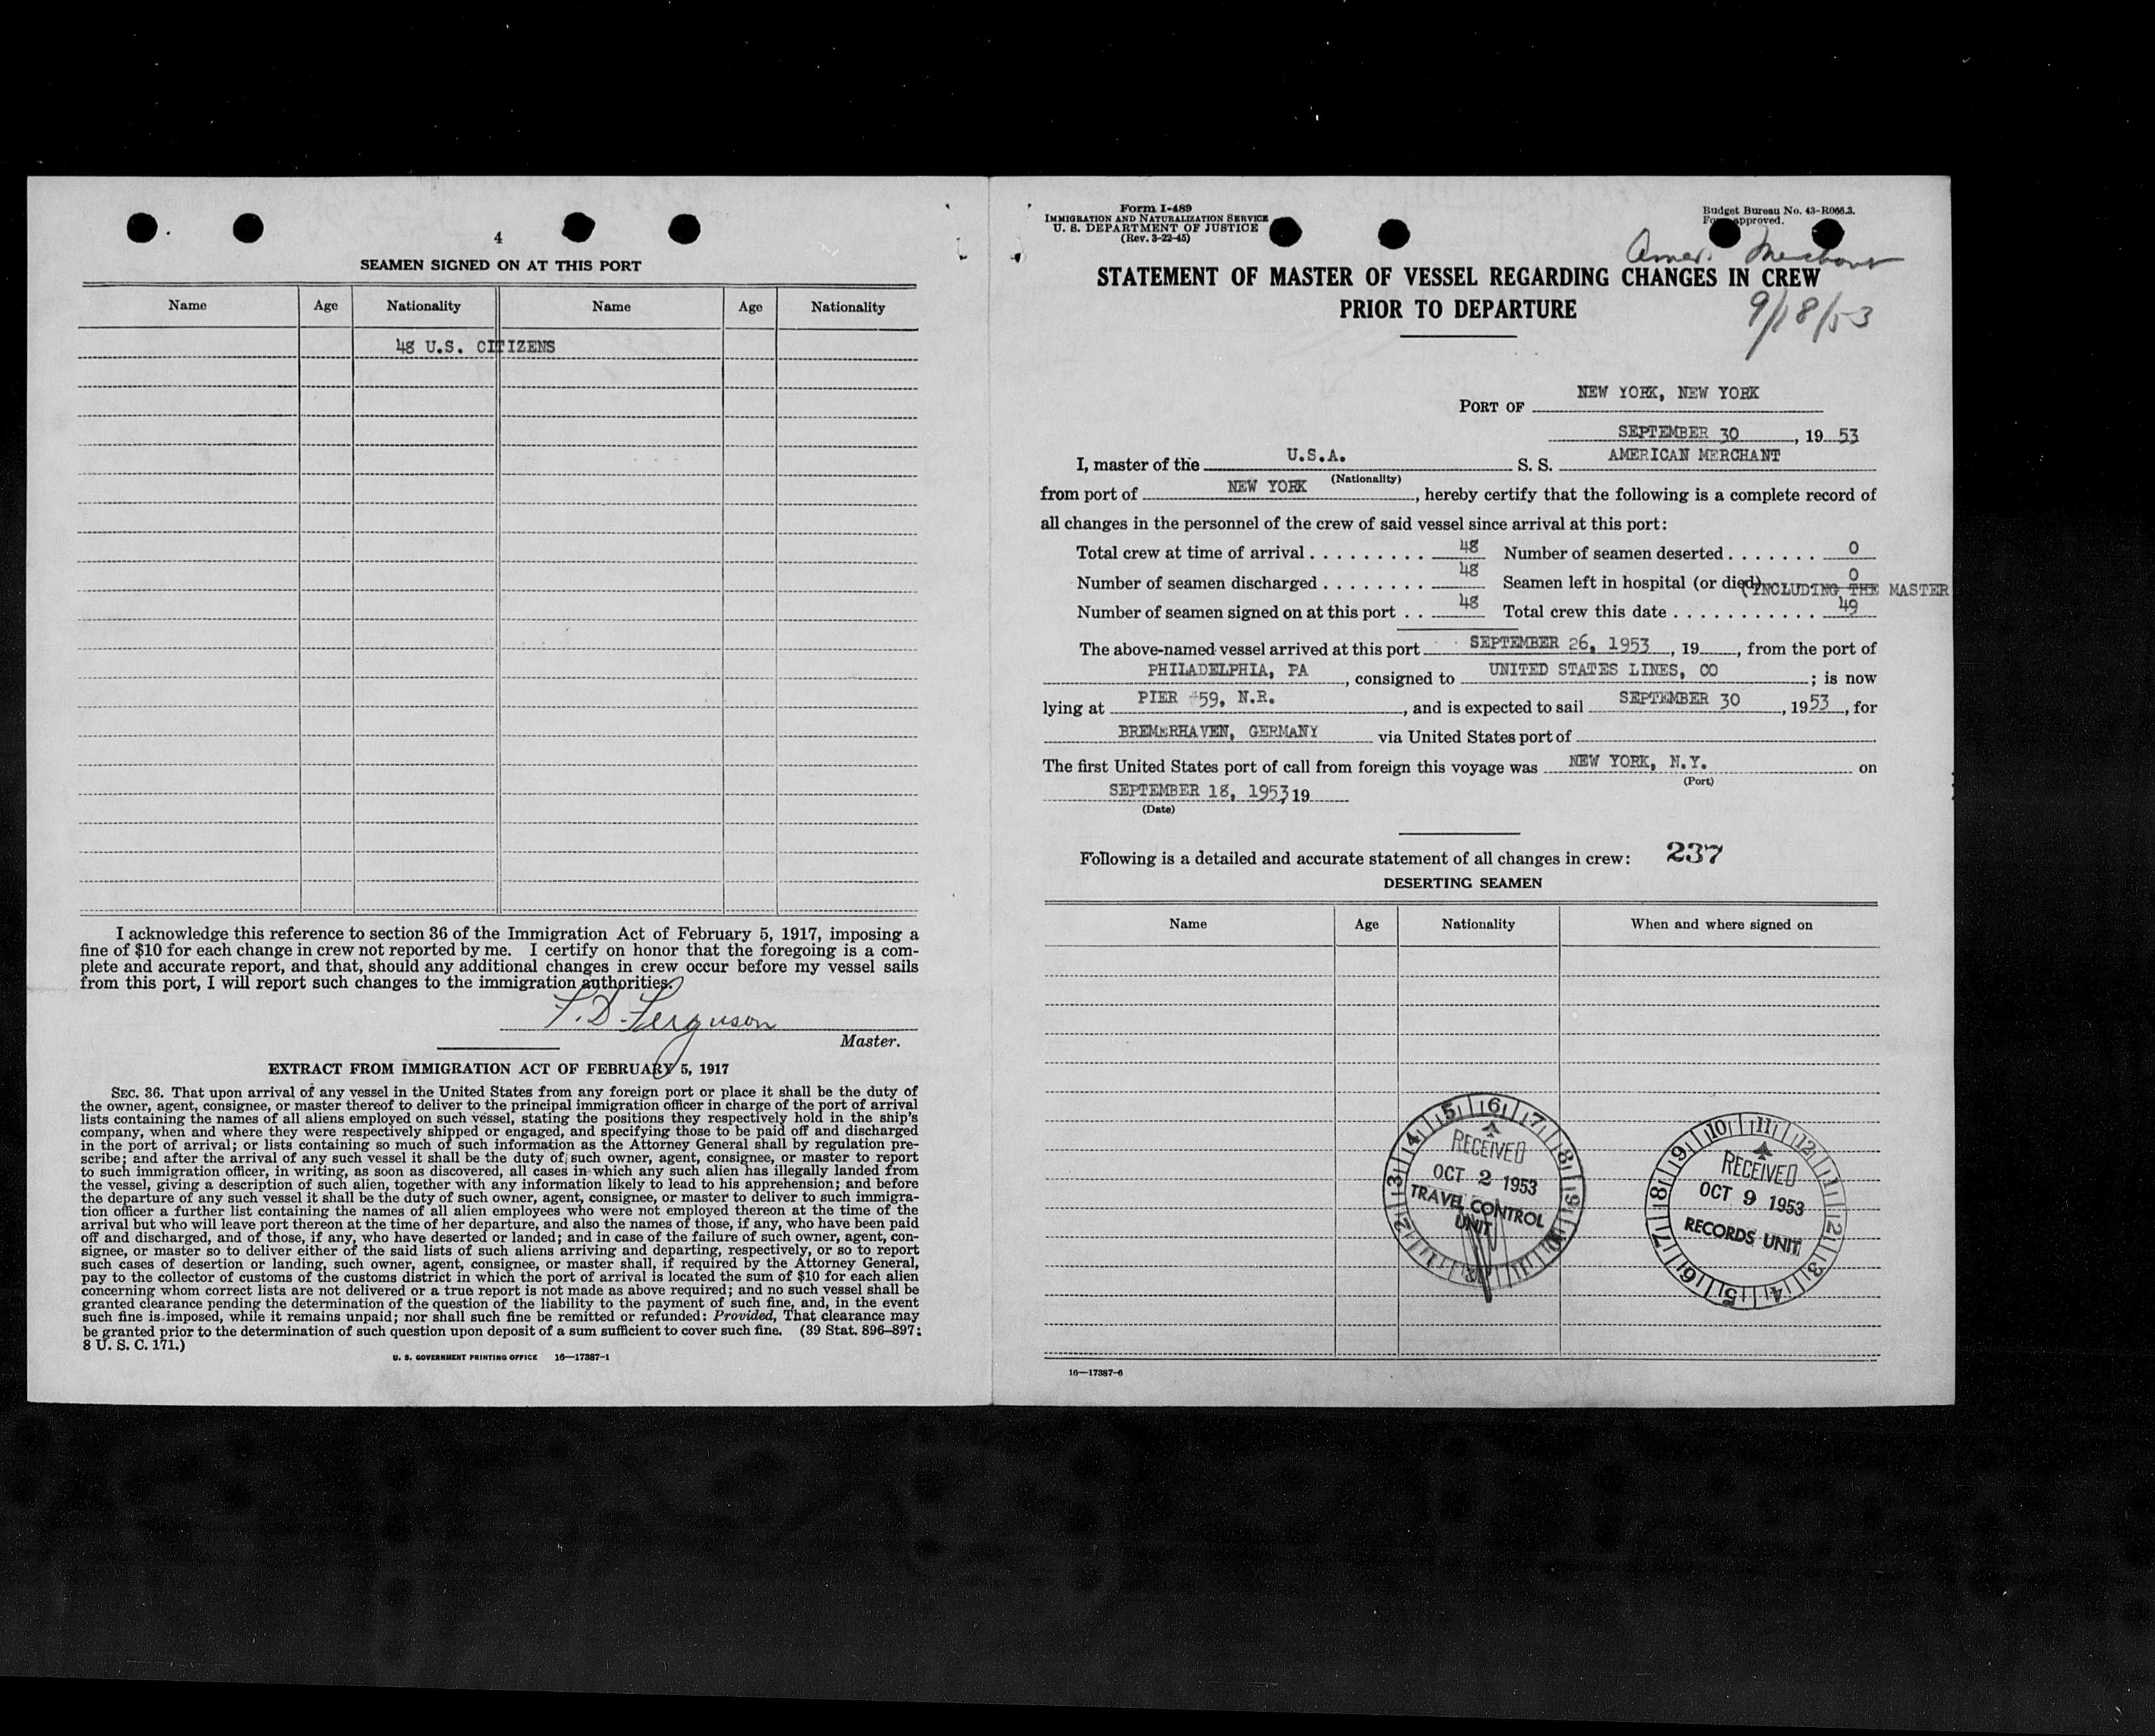 4
SEAMEN SIGNED ON AT THIS PORT
Name Age Nationality Name Age Nationality
48 U.S. CITIZENS
I acknowledge this reference to section 36 of the Immigration Act of February 5, 1917, imposing a
fine of $10 for each change in crew not reported by me. I certify on honor that the foregoing is a com-
plete and accurate report, and that, should any additional changes in crew occur before my vessel sails
from this port, I will report such changes to the immigration authorities.
F. D. Ferguson
Master.
EXTRACT FROM IMMIGRATION ACT OF FEBRUARY 5, 1917
SEC. 36. That upon arrival of any vessel in the United States from any foreign port or place it shall be the duty of
the owner, agent, consignee, or master thereof to deliver to the principal immigration officer in charge of the port of arrival
lists containing the names of all aliens employed on such vessel, stating the positions they respectively hold in the ship's
company, when and where they were respectively shipped or engaged, and specifying those to be paid off and discharged
in the port of arrival; or lists containing so much of such information as the Attorney General shall by regulation pre-
scribe; and after the arrival of any such vessel it shall be the duty of such owner, agent, consignee, or master to report
to such immigration officer, in writing, as soon as discovered, all cases in which any such alien has illegally landed from
the vessel, giving a description of such alien, together with any information likely to lead to his apprehension; and before
the departure of any such vessel it shall be the duty of such owner, agent, consignee, or master to deliver to such immigra-
tion officer a further list containing the names of all alien employees who were not employed thereon at the time of the
arrival but who will leave port thereon at the time of her departure, and also the names of those, if any, who have been paid
off and discharged, and of those, if any, who have deserted or landed; and in case of the failure of such owner, agent, con-
signee, or master so to deliver either of the said lists of such aliens arriving and departing, respectively, or so to report
such cases of desertion or landing, such owner, agent, consignee, or master shall, if required by the Attorney General,
pay to the collector of customs of the customs district in which the port of arrival is located the sum of $10 for each alien
concerning whom correct lists are not delivered or a true report is not made as above required; and no such vessel shall be
granted clearance pending the determination of the question of the liability to the payment of such fine, and, in the event
such fine is imposed, while it remains unpaid; nor shall such fine be remitted or refunded: Provided, That clearance may
be granted prior to the determination of such question upon deposit of a sum sufficient to cover such fine. (39 Stat. 896–897;
8 U. S. C. 171.)
U. S. GOVERNMENT PRINTING OFFICE 16—17387-1
Form I-489
IMMIGRATION AND NATURALIZATION SERVICE
U. S. DEPARTMENT OF JUSTICE
(Rev. 3-22-45)
Budget Bureau No. 43-R066.3.
approved.
Amer. Merchant
STATEMENT OF MASTER OF VESSEL REGARDING CHANGES IN CREW
PRIOR TO DEPARTURE
9/18/53
PORT OF NEW YORK, NEW YORK
SEPTEMBER 30, 19 53
I, master of the U.S.A. S. S. AMERICAN MERCHANT
(Nationality)
from port of NEW YORK, hereby certify that the following is a complete record of
all changes in the personnel of the crew of said vessel since arrival at this port:
Total crew at time of arrival . . . . . . . . . 48 Number of seamen deserted . . . . . . . 0
Number of seamen discharged . . . . . . . . 48 Seamen left in hospital (or died) 0
(INCLUDING THE MASTER
Number of seamen signed on at this port . . 48 Total crew this date . . . . . . . . . . . . 49
The above-named vessel arrived at this port SEPTEMBER 26, 1953, 19, from the port of
PHILADELPHIA, PA, consigned to UNITED STATES LINES, CO; is now
lying at PIER #59, N.R., and is expected to sail SEPTEMBER 30, 1953, for
BREMERHAVEN, GERMANY via United States port of
The first United States port of call from foreign this voyage was NEW YORK, N.Y. on
(Port)
SEPTEMBER 18, 1953, 19
(Date)
Following is a detailed and accurate statement of all changes in crew: 237
DESERTING SEAMEN
Name Age Nationality When and where signed on
RECEIVED
OCT 2 1953
TRAVEL CONTROL
UNIT
RECEIVED
OCT 9 1953
RECORDS UNIT
16—17387-6